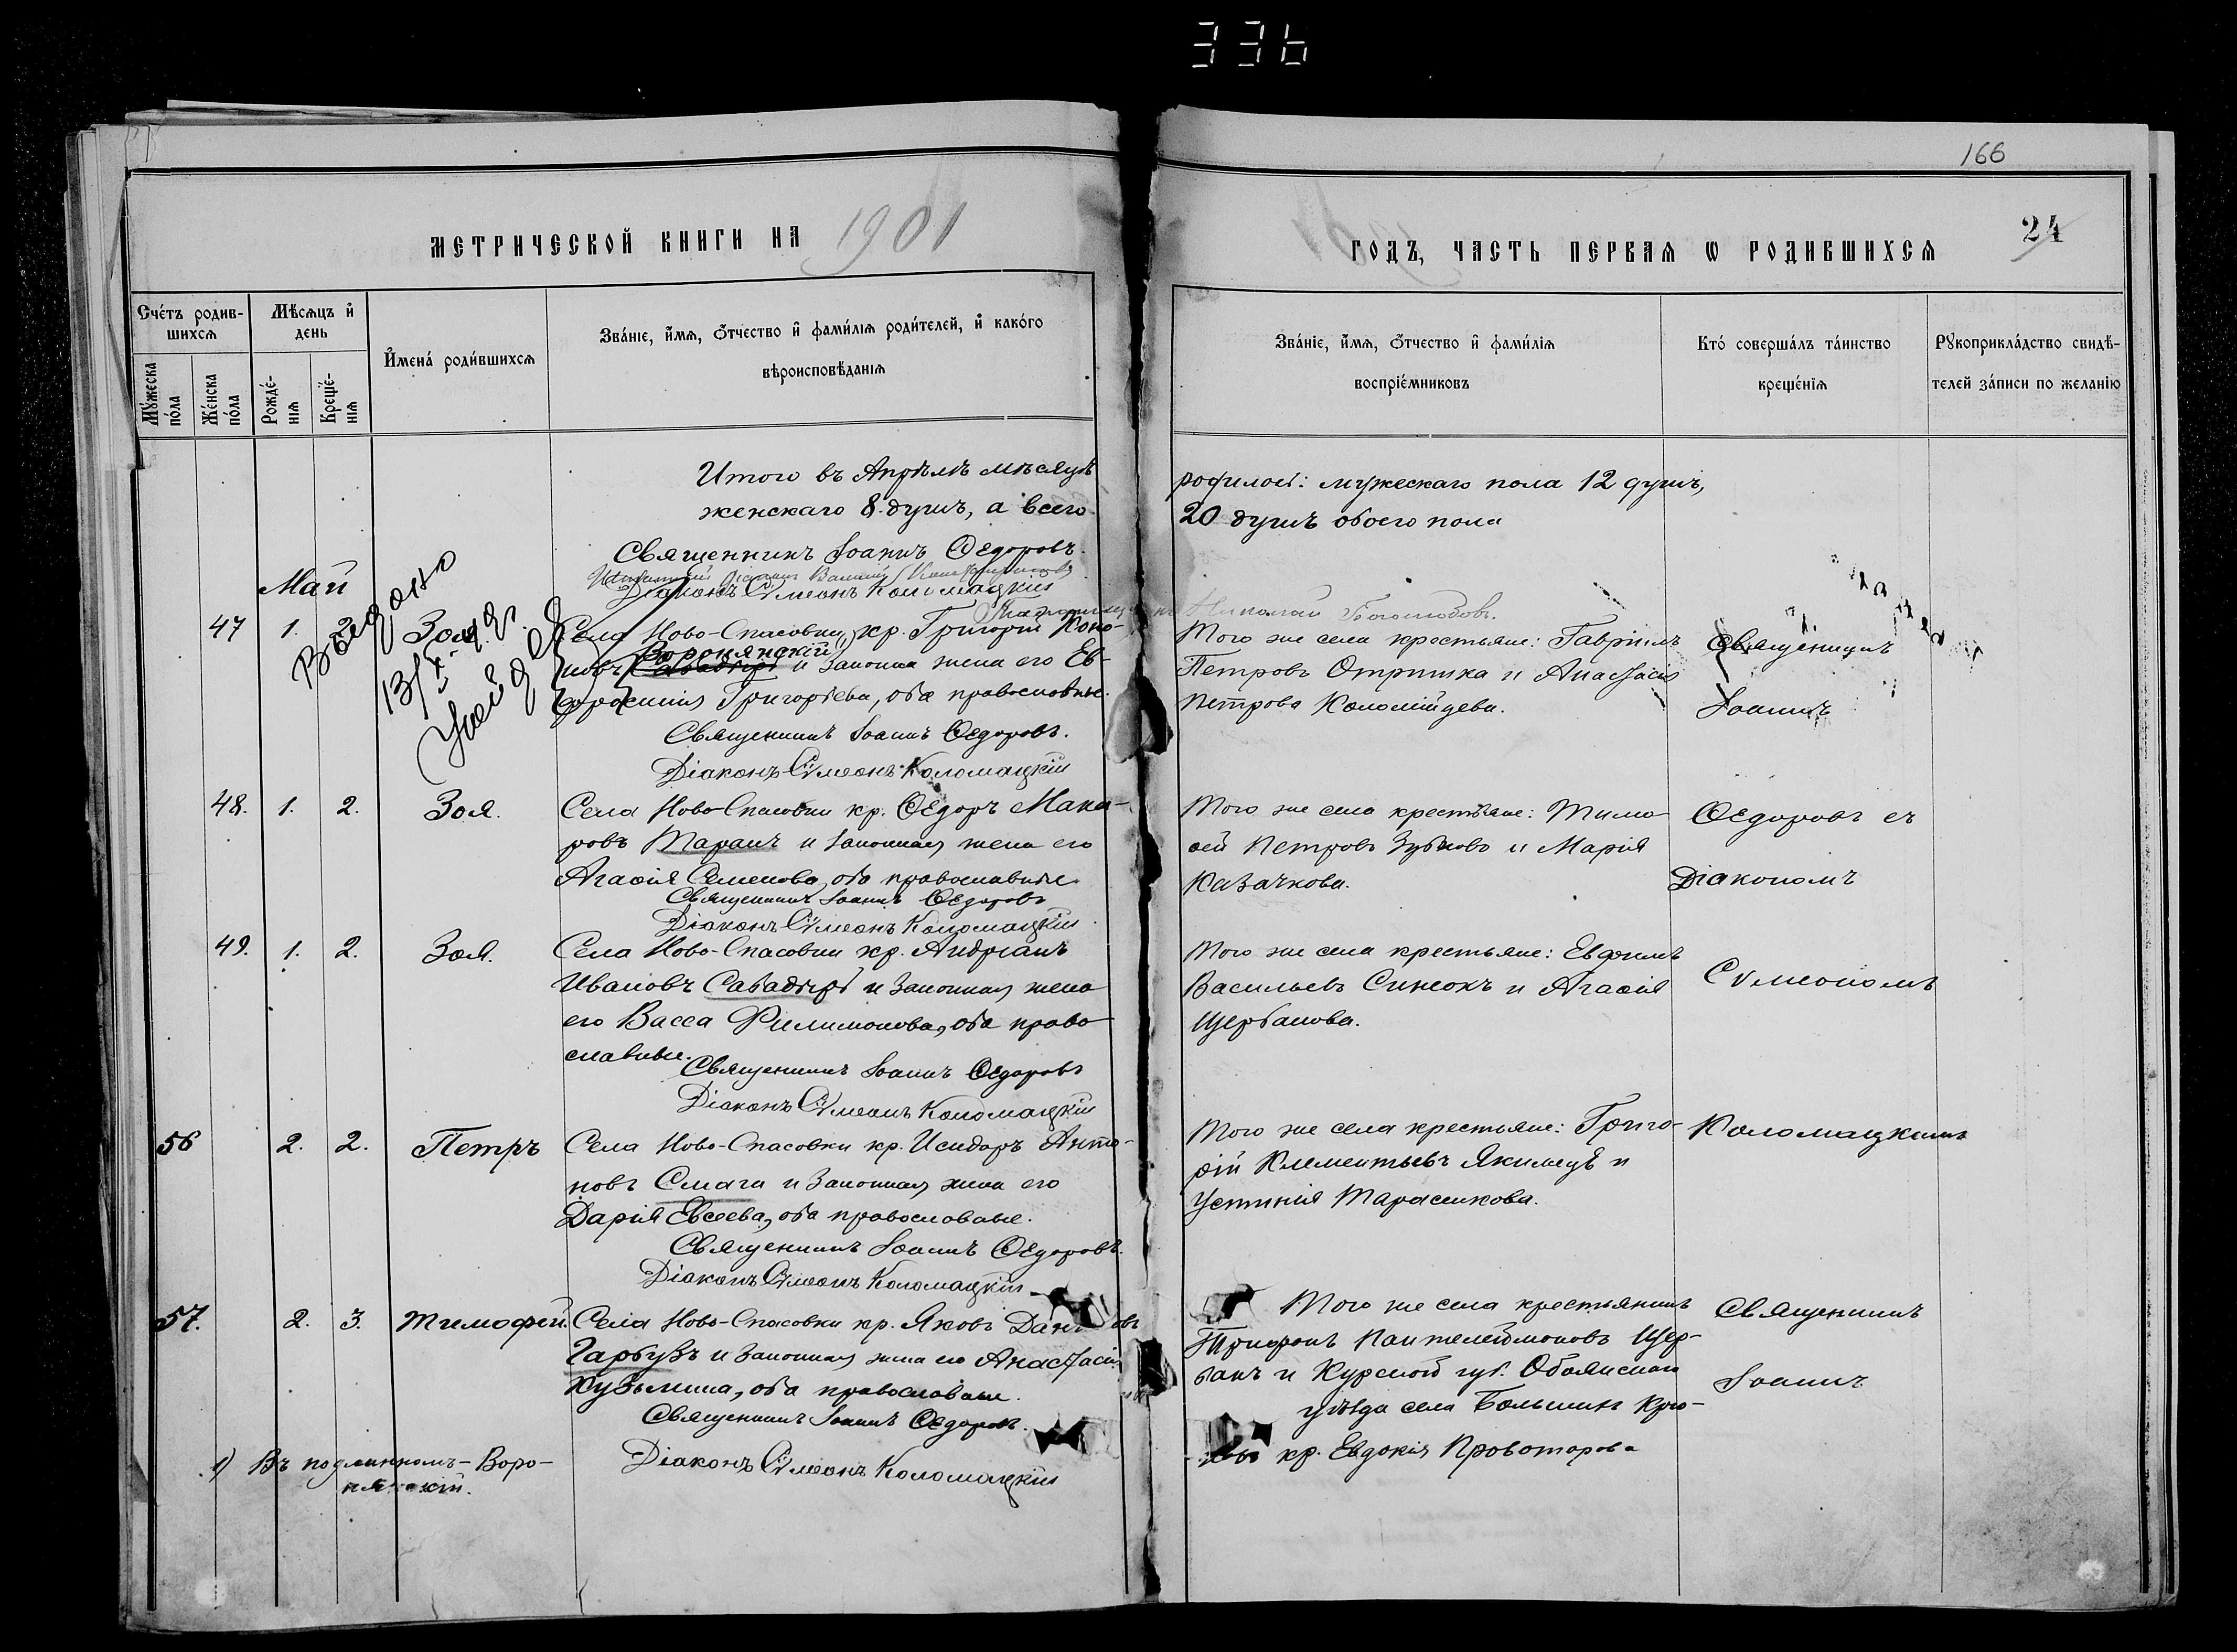 336
166
МЕТРИЧЕСКОЙ КНИГИ НА 1901
ГОДЪ, ЧАСТЬ ПЕРВАЯ Ѡ РОДИВШИХСЯ
24
Счéтъ родив-
шихся
Мѣсяцъ и҆
день
Мꙋ́жеска
по́ла
Же́нска
по́ла
Рожде́-
нія
Креще́-
нія
И҆мена́ роди́вшихся
Зва́ніе, и҆́мя, ѻ҆́тчество и҆ фами́лія роди́телей, и҆ како́го
вѣроисповѣ́данія
Зва́ніе, и҆́мя, ѻ҆́тчество и҆ фами́лія
воспріе́мниковъ
Кто́ соверша́лъ та́инство
креще́нія
Рꙋкоприкла́дство свидѣ́-
телей за́писи по жела́нію
Итого въ Апрѣлѣ мѣсяцѣ
женскаго 8 душъ, а всего
родилось: мужескаго пола 12 душъ,
20 душъ обоего пола
Священникъ Іоаннъ Ѳедоровъ.
Діаконъ Сѵмеонъ Коломацкій
Николай Боголюбовъ.
Май
Выдано
13/X
47 1. 2. Зоя.
Села Ново-Спасовки, кр. Григорій Коно-
новъ
Воронянскій
и законная жена его Ев-
фросинія Григорьева, оба православные.
Священникъ Іоаннъ Ѳедоровъ.
Діаконъ Сѵмеонъ Коломацкій
Того же села крестьяне: Гавріилъ
Петровъ Отришка и Анастасія
Петрова Коломійцева.
Священникъ
Іоаннъ
48. 1. 2. Зоя.
Села Ново-Спасовки кр. Ѳедоръ Мака-
ровъ Таранъ и законная жена его
Агаѳія Семенова, оба православные.
Священникъ Іоаннъ Ѳедоровъ
Діаконъ Сѵмеонъ Коломацкій
Того же села крестьяне: Тимо-
ѳей Петровъ Зубковъ и Марія
Казачкова.
Ѳедоровъ съ
Діакономъ
49. 1. 2. Зоя.
Села Ново-Спасовки кр. Андріанъ
Ивановъ Савадырь и законная жена
его Васса Филимонова, оба право-
славные.
Священникъ Іоаннъ Ѳедоровъ
Діаконъ Сѵмеонъ Коломацкій
Того же села крестьяне: Евфимъ
Васильевъ Синокъ и Агаѳія
Щербакова.
Сѵмеономъ
56 2. 2. Петръ
Села Ново-Спасовки кр. Исидоръ Анто-
новъ Смага и законная жена его
Дарія Евсеева, оба православные.
Священникъ Іоаннъ Ѳедоровъ.
Діаконъ Сѵмеонъ Коломацкій
Того же села крестьяне: Григо-
рій Клементьевъ Якимецъ и
Устинія Тарасикова.
Коломацкимъ
57. 2. 3. Тимофей.
Села Ново-Спасовки кр. Яковъ
Гарбузъ и законная жена его Анастасія
Кузьмина, оба православные.
Священникъ Іоаннъ Ѳедоровъ.
Діаконъ Сѵмеонъ Коломацкій
Того же села крестьянинъ
Трифонъ Пантелеймоновъ Щер-
бакъ и Курской губ. Обоянскаго
уѣзда села Большихъ
кр. Евдокія Провоторова
Священникъ
Іоаннъ
1) Въ подлинномъ - Воро-
нянскій.